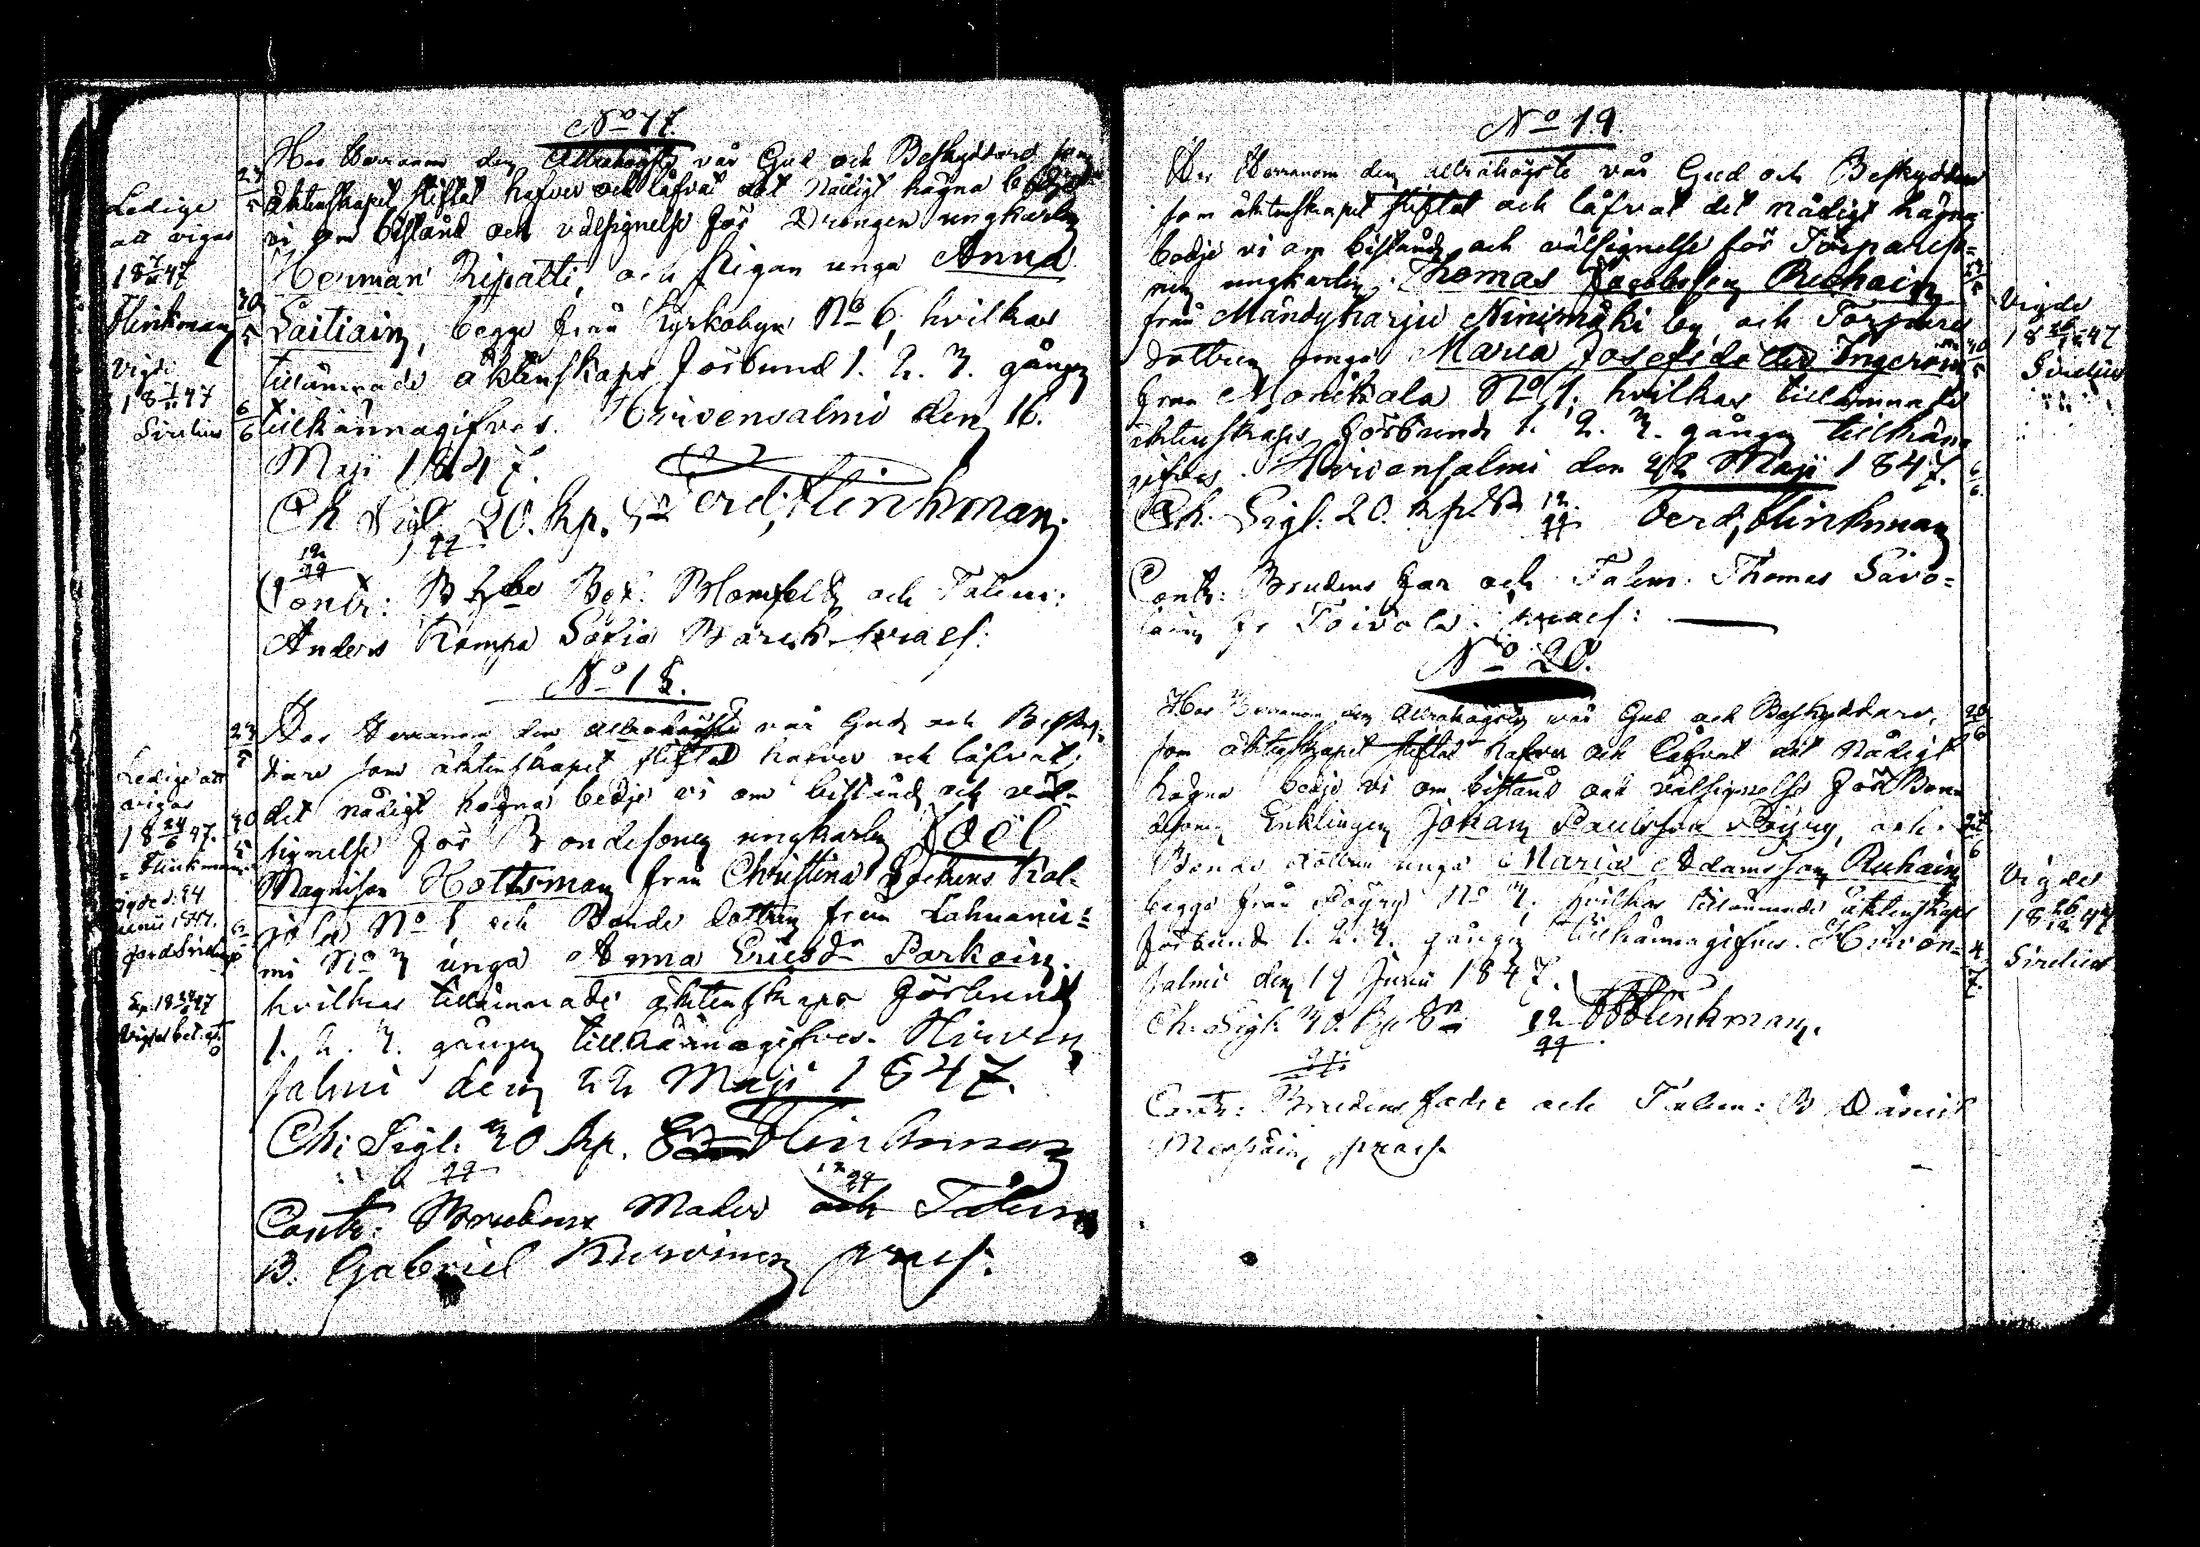 No 17.
Hos Herranom den Allrahögste vår Gud och Beskyddare som
äktenskapet stiftat hafver och låfvat det Nådigt hägna bedje
vi om bistånd och välsignelse för Drängen ungkarlen
Herman Ripatti, och Pigan unga Anna
Laitiain, begge från Kyrkobyn No 6, hvilkas
tillämnade äktenskaps förbund 1. 2. 3. gången
tillkännagifves. Hirvensalmi den 16.
Maji 1847.
Ch Sigl. 20. kp. Sr Ferd. Flinkman.
Contr: Bref. Blomfeldt och Talem:
Anders Kompa Sofia Barck praes:
Ledige
att vigas
18 47
Flinkman
Vigde
18 47
Sirelius
23
5
30
5
6
6
No 18.
Hos Herranom den allrahögste vår Gud och Besky-
dare som äktenskapet stiftat hafver och låfvat,
det nådigt hägna bedje vi om bistånd och väl-
signelse för Bondesonen ungkarlen Joël
Magnison Hottsman från Christina Sockens Kol-
No 1 och Bonde dottren från Lahnanie-
mi No 3 unga Anna Ericsdr Parkain.
hvilkas tillämnade äktenskaps förbund
1. 2. 3. gången tillkännagifves. Hirven
salmi den 22 Maji 1847.
Ch: Sigl. 30 kp. Sr Flinkman
Contr: Brudens Moder och Talem
B. Gabriel Kurvinen praes:
Ledige att
vigas
18 24/6 47.
Flinkman
23
5
30
5
6
No 19.
Hos Herranom den allrahögste vår Gud och Beskyddare
som äktenskapet stiftat och låfvat det nådigt hägna
bedje vi om bistånd och välsignelse för Torpareso-
nen ungkarlen Thomas Jacobsson Ruhain
från Mändyharju Ninimäki by och Torpare
dottren unga Maria Josefsdr Ingeroin
från Monikala No 1. hvilkas tillämnade
äktenskaps förbund 1. 2. 3. gången tillkänna
gifves. Hirvensalmi den 22 Maji 1847.
Ch. Sigl. 20. kp. Sr Ferd, Flinkman
Contr: Brudens Far och Talem: Thomas Savo-
lain fr Toivola. praes:
Vigde
18 47
Sirelius
No 20.
Hos Herranom den Allrahögste vår Gud och Beskyddare,
som äktenskapet stiftat hafver och låfvat det Nådigt
hägna bedje vi om bistånd och välsignelse för Bon-
desonen Enklingen Johan Paulsson Pöyry, och
Bonde dottren unga Maria Adamsson Ruhain
begge från Pöyry No 3. hvilkas tillämnade äktenskaps
förbund 1. 2. 3. gången tillkännagifves. Hirven-
salmi den 19 Junii 1847.
Ch. Sigl. 30. kp Sr Flinkman.
Contr: Brudens fader och Talem: B
praes.
Vigde
18 47
Sirelius